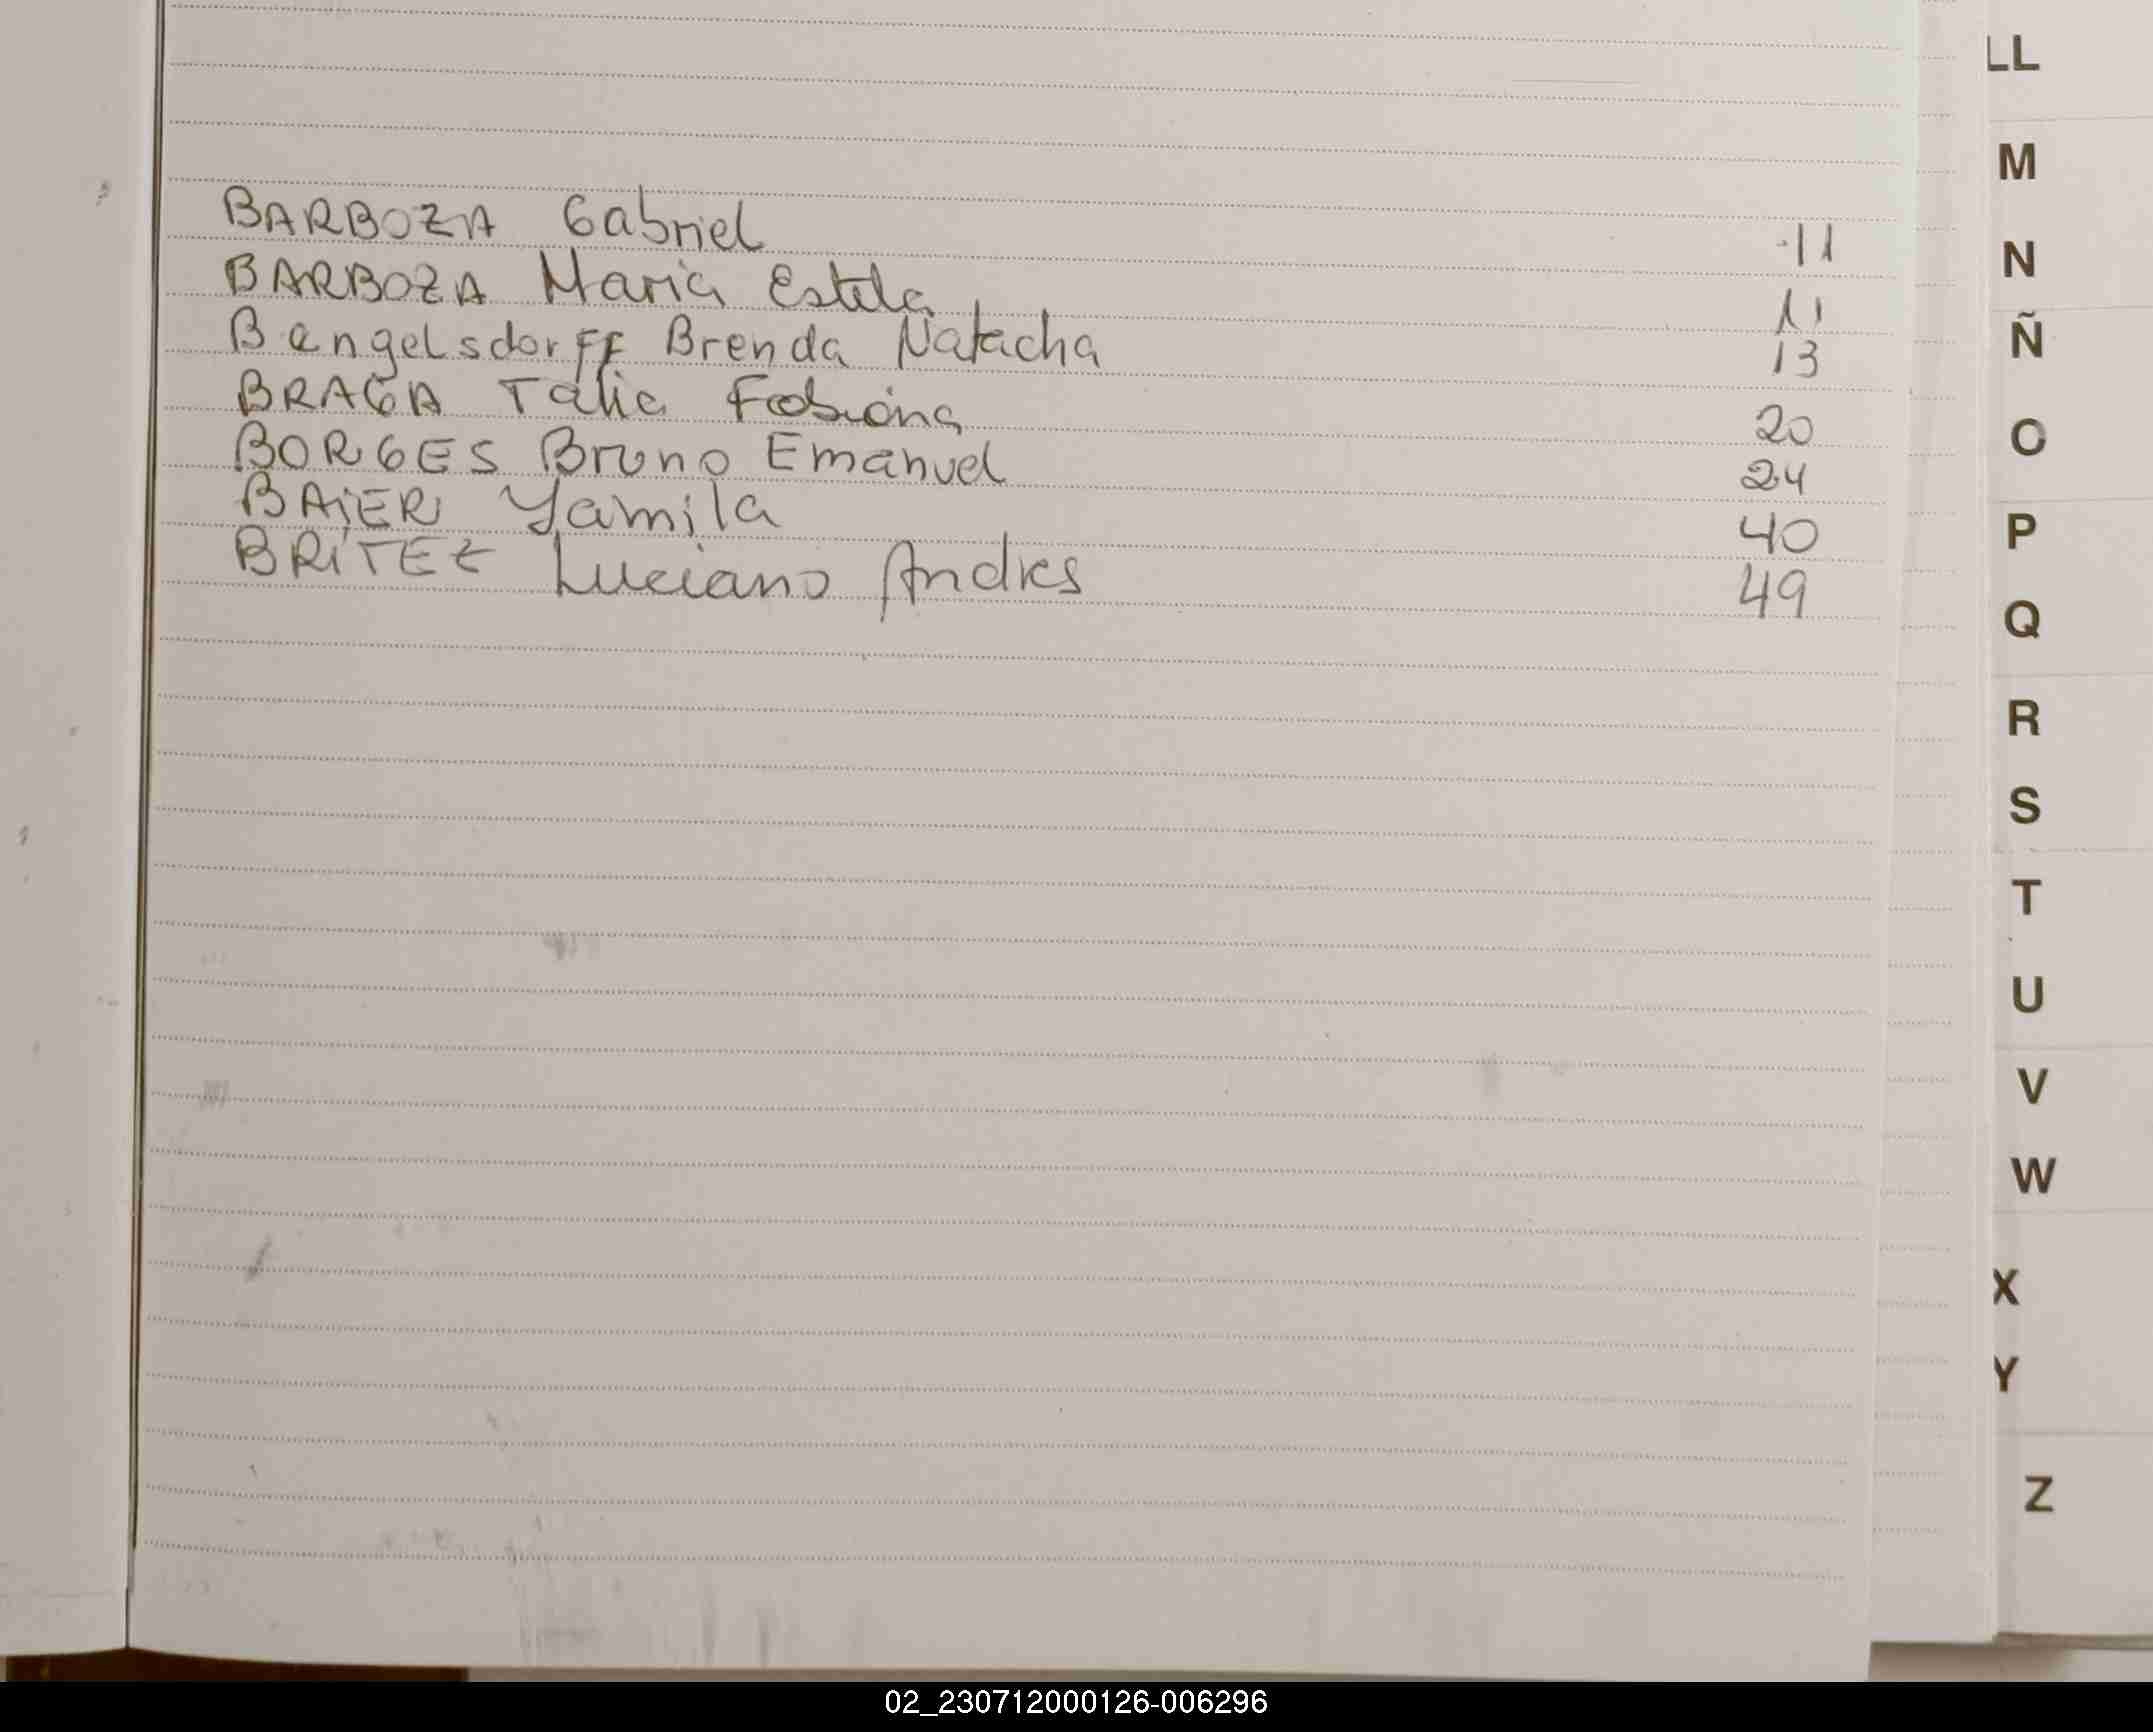 BARBOZA Gabriel 11
BARBOZA Maria Estela 11
Bengelsdorff Brenda Natacha 13
BRAGA Talia Fabiana 20
BORGES Bruno Emanuel 24
BAiER Yamila 40
BRiTEZ Luciano Andres 49
LL
M
N
Ñ
O
P
Q
R
S
T
U
V
W
X
Y
Z
02_230712000126-006296